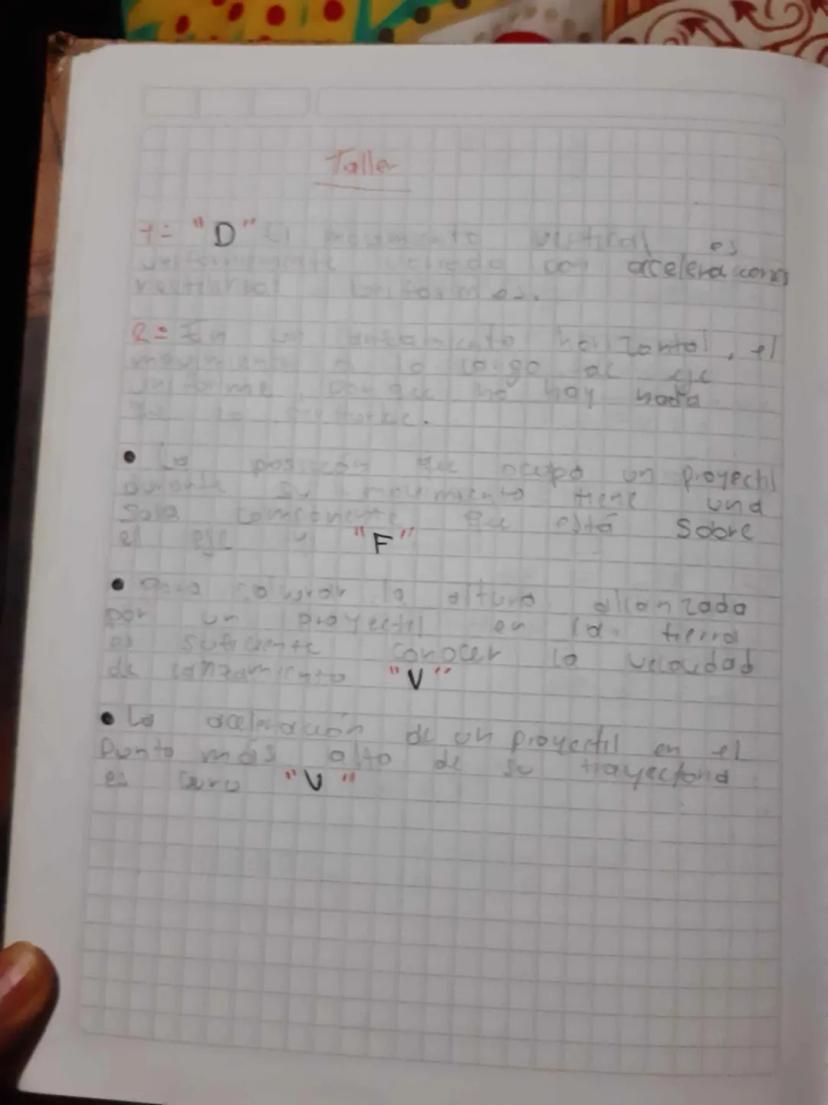 Taller
1= "D" El movimiento vertical es
aceleraciones
2= En un lanzamiento horizontal, el
movimiento a lo largo del eje
uniforme porque no hay nada
que lo
• La posición que ocupa un proyectil
durante su movimiento tiene una
sola componente que está sobre
el eje y "F"
• para calcular la altura alcanzada
por un proyectil en la tierra
es suficiente conocer la velocidad
de lanzamiento "V"
• La aceleración de un proyectil en el
punto más alto de su trayectoria
es cero "V"